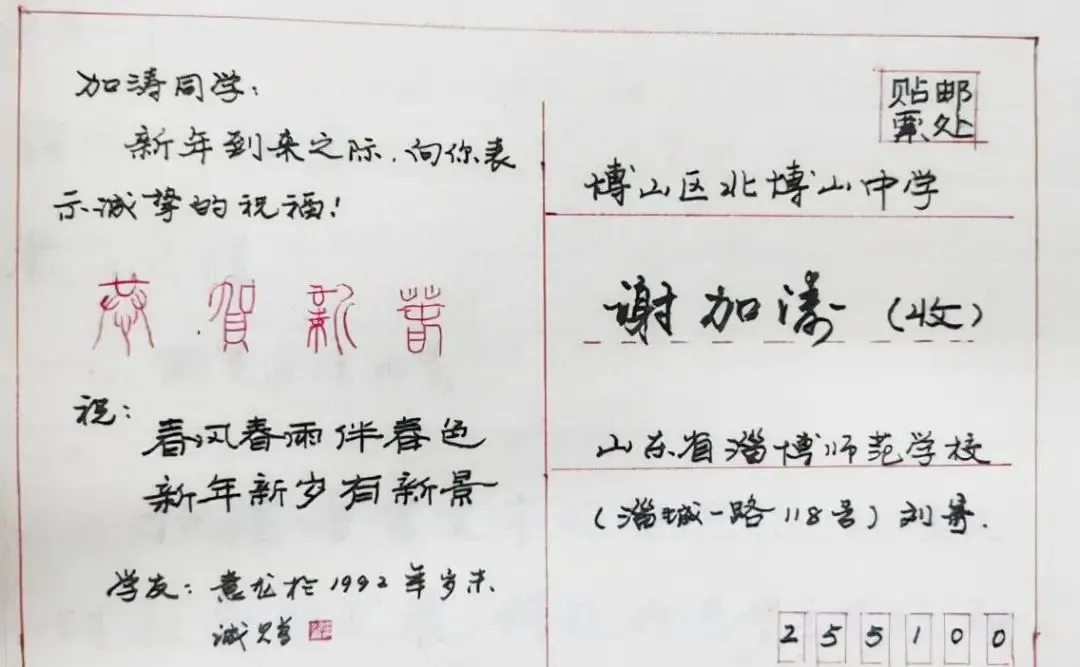 加涛同学：
新年到来之际，向你表
示诚挚的祝福！
恭贺新春
祝：
春风春雨伴春色
新年新岁有新景
学友：意龙於1992年岁末
诚贺
贴邮
票处
博山区北博山中学
谢加涛（收）
山东省淄博师范学校
（淄城一路118号）刘寄.
255100